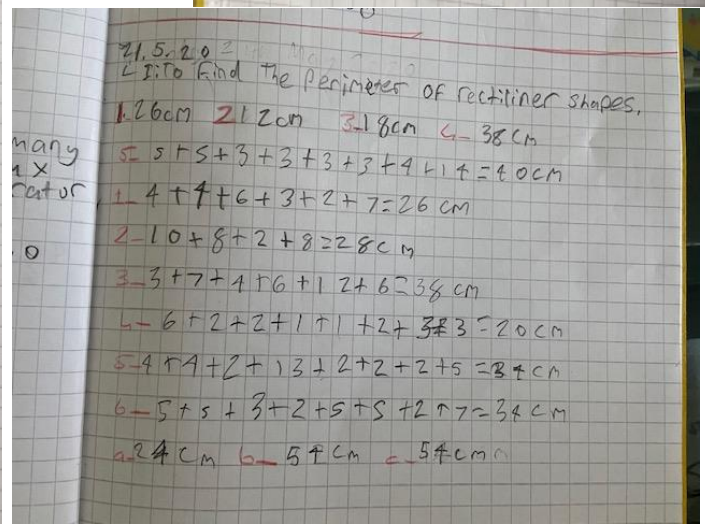 21.5.20
LI:To Find The Perimeter of rectiliner shapes.
1.26cm 212cm 3-18cm 4- 38cm
many
x
rator
5- 5+5+3+3+3+3+4+14=40cm
1- 4+4+6+3+2+7=26 cm
2-10+8+2+8=28cm
.0
3-3+7+4+6+12+6=38 cm
4- 6+2+2+1+1+2+3+3=20cm
5-4+4+2+13+2+2+2+5=34cm
6-5+5+3+2+5+5+2+7=34cm
a-24cm b- 54cm c-54cm